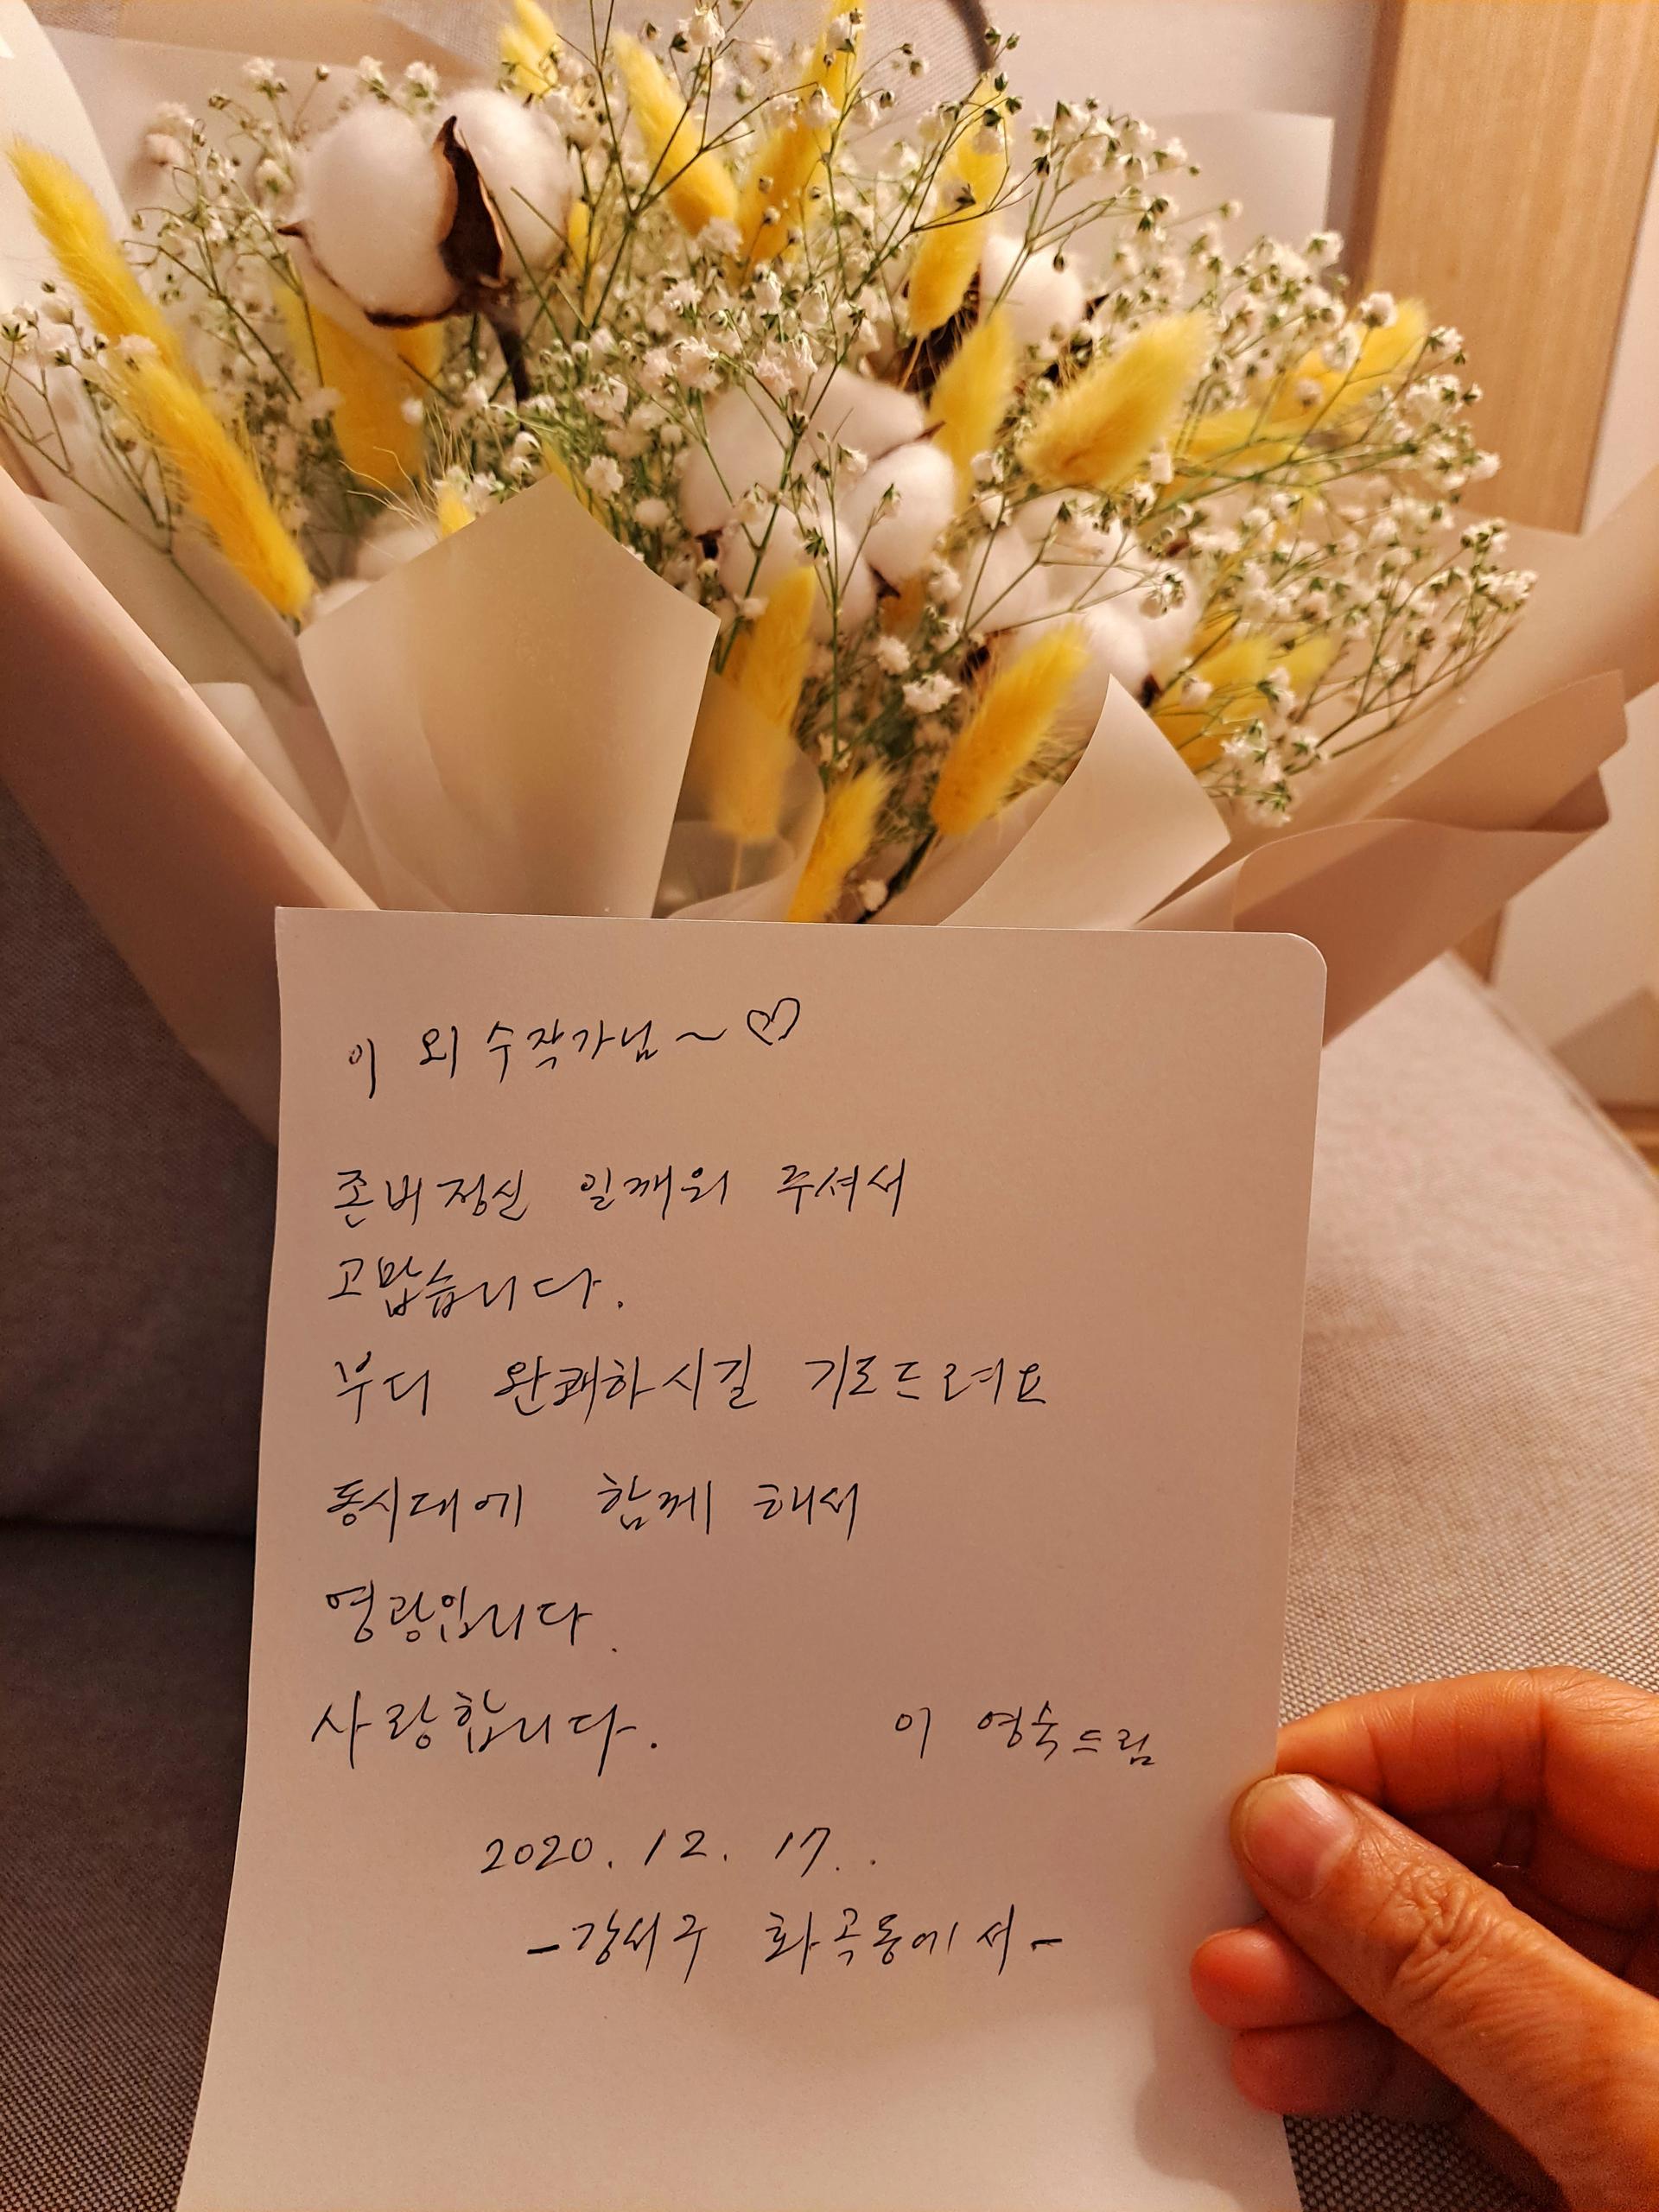 이 외수작가님~♡
존버정신 일깨워 주셔서
고맙습니다.
부디 완쾌하시길 기도드려요
동시대에 함께 해서
영광입니다.
사랑합니다. 이 영숙드림
2020. 12. 17..
-강서구 화곡동에서-